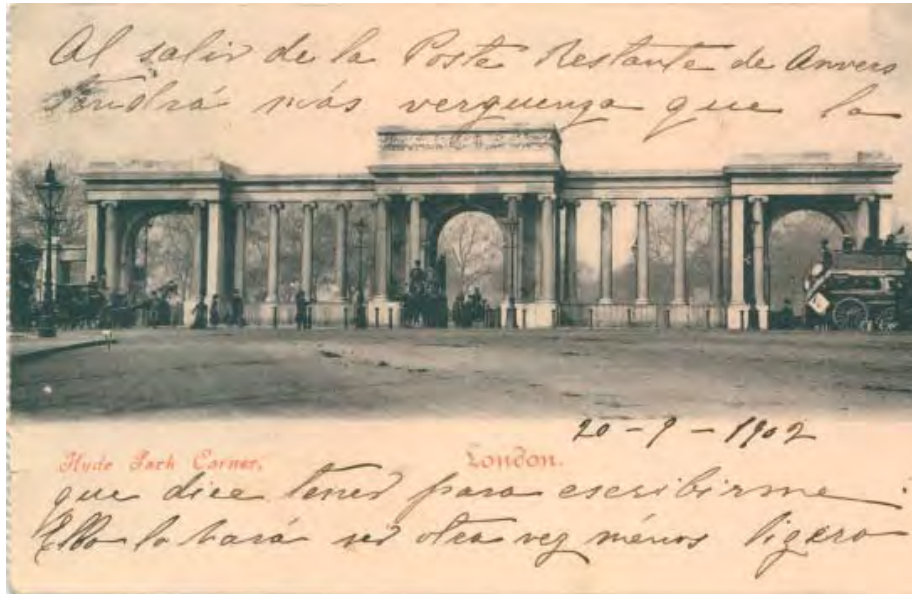 Al salir de la Poste Restante de Anvers
tendrá más verguenza que la
20-9-1902
Hyde Park Corner. London.
que dice tener para escribirme.
Ello lo hará ser otra vez ménos ligero